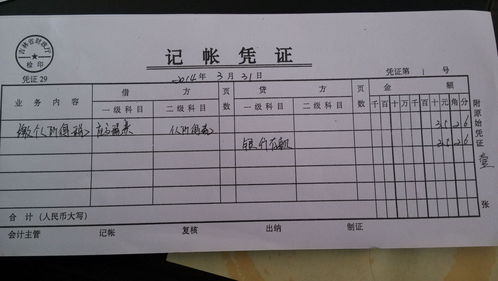 吉林省财政厅
检印
记帐凭证
凭证 29
2014年3月31日
凭证第 1 号
业务内容 借方 页数 贷方 页数 金额
一级科目 二级科目 一级科目 二级科目 千百十万千百十元角分
缴个人所得税 应交税费 个人所得税 2526
银行存款 2526
附原始凭证 壹 张
合计(人民币大写)
会计主管 记帐 复核 出纳 制证